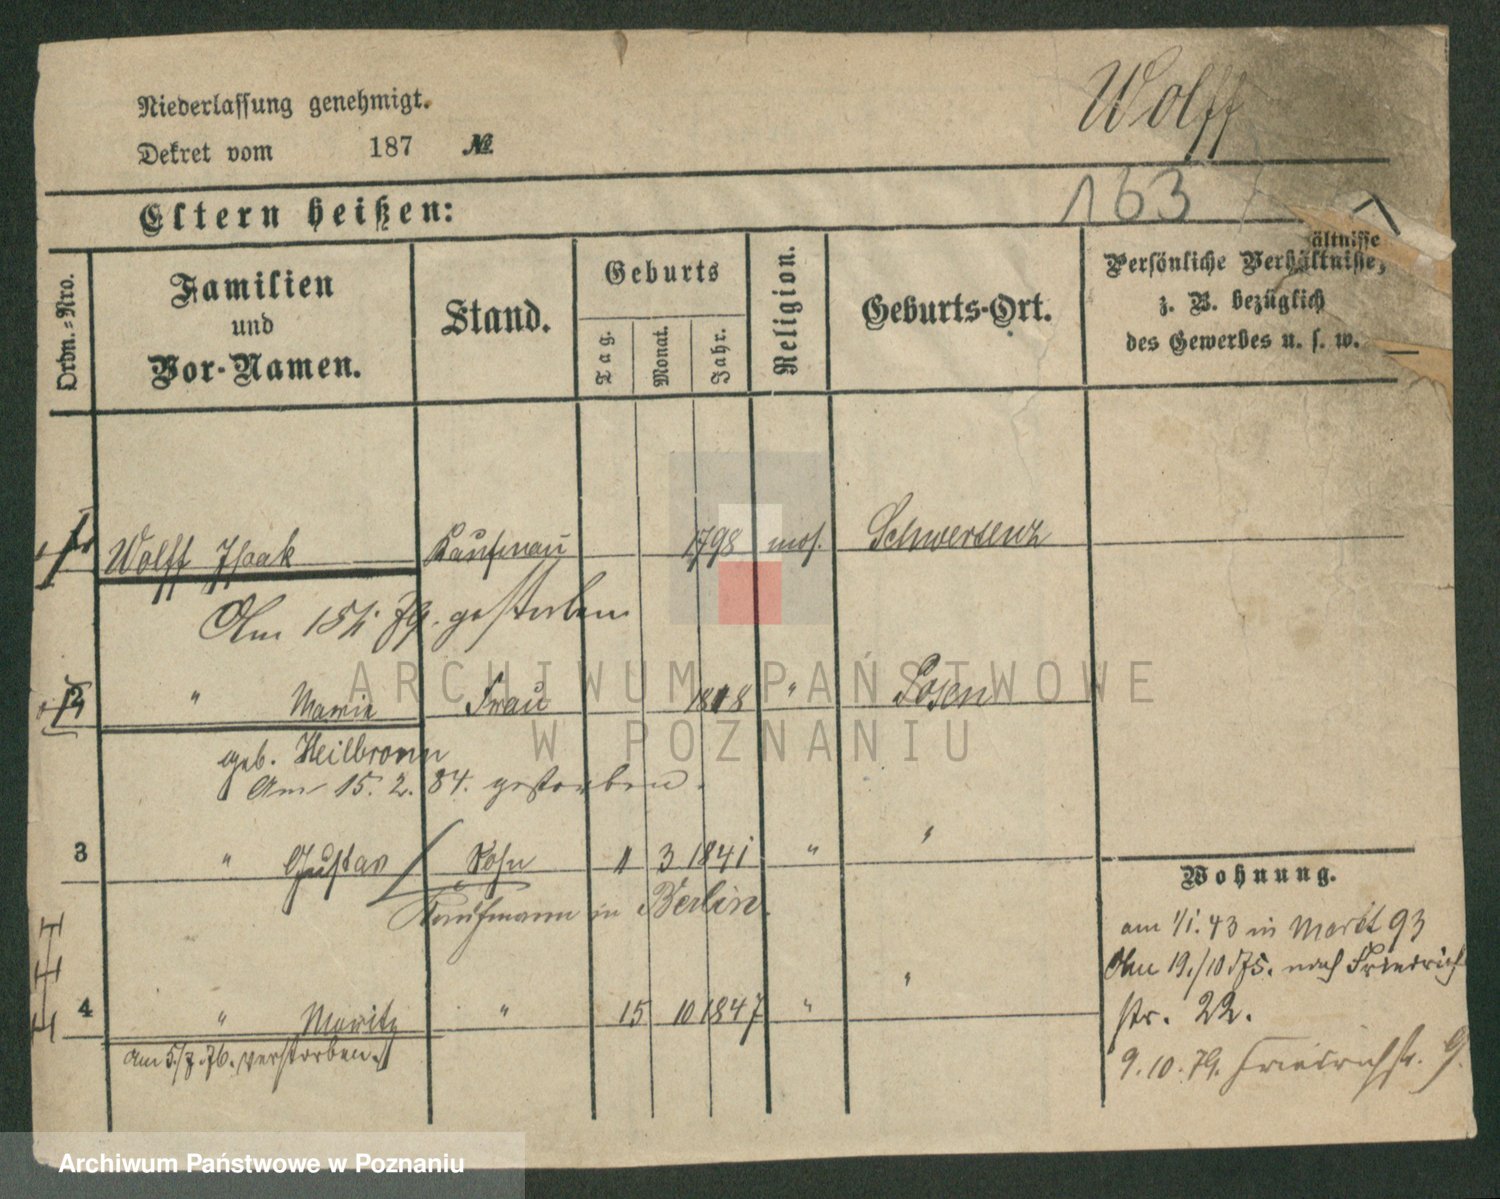 Wolff
Niederlassung genehmigt.
Dekret vom 187 №
163
Eltern heißen:
Ordn.-Nro.
Familien
und
Vor-Namen.
Stand.
Geburts
Tag.
Monat.
Jahr.
Religion.
Geburts-Ort.
ältnisse
Persönliche Verhältnisse,
z. B. bezüglich
des Gewerbes u. s. w.
Wolff Isaak Kaufmau 1798 mos. Schwersenz
Am 15/ 79. gestorben
" Marie Frau 1818 " Posen
geb. Heilbronn
Am 15. 2. 84. gestorben.
3 " Gustav Sohn 1 3 1841 " "
Kaufmann in Berlin.
4 " Moritz " 15 10 1847 " "
am 5/7. 76. verstorben.
Wohnung.
am 1/1. 43 in Markt 93
Am 19./10 75. nach Friedrich
str. 22.
9. 10. 79. Friedrichstr. 9.
ARCHIWUM PAŃSTWOWE
W POZNANIU
Archiwum Państwowe w Poznaniu